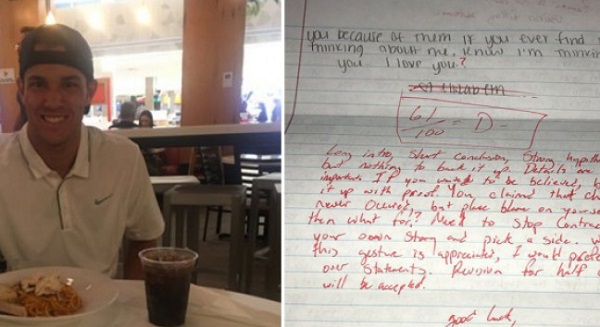 you because of them If you ever find
thinking about me, know I'm thinkin
you I love you?
61
100 = D-
Long intro, short conclusion, Strong hypoth
but nothing to back it up. Details are
important. If you want to be believed, b
it up with proof. You claimed that che
never Occured, but place blame on yourse
then what for? Need to stop Contrad
your own Story and pick a side. W
this gesture is appreciated, I would prefe
over Statements. Revision for half c
will be accepted.
good luck,